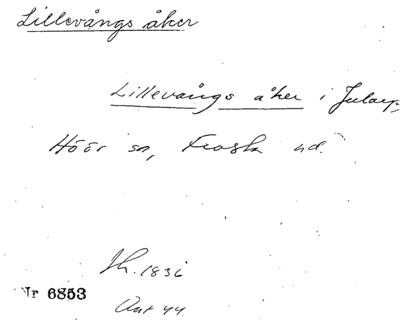 Lillevångs åker
Lillevångs åker i Jularp,
Höör sn, Frosta hd.
Sk. 1836
Nr 6853
Ant 44.